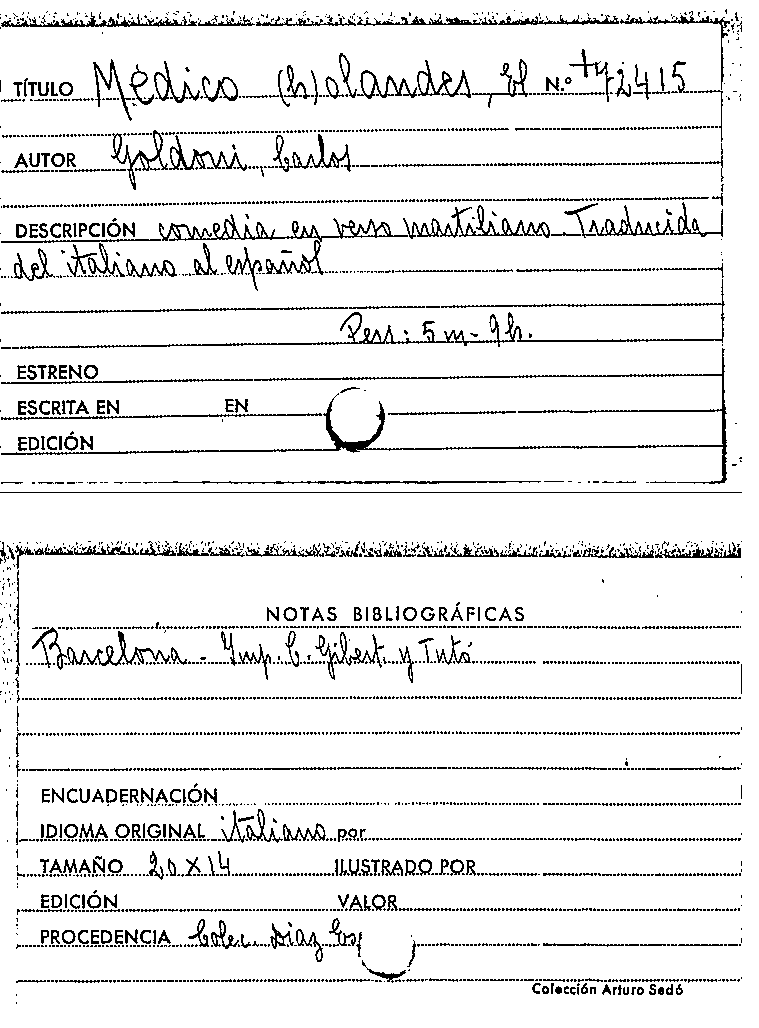 TÍTULO Médico (h)olandes, El N.º +72415
AUTOR Goldoni, Carlos
DESCRIPCIÓN comedia en verso martiliano. Traducida
del italiano al español
Pers: 5 m - 9 h.
ESTRENO
ESCRITA EN EN
EDICIÓN
NOTAS BIBLIOGRÁFICAS
Barcelona - Imp. C. Gibert y Tutó
ENCUADERNACIÓN
IDIOMA ORIGINAL italiano por
TAMAÑO 20 X 14 ILUSTRADO POR
EDICIÓN VALOR
PROCEDENCIA Colec. Díaz
Colección Arturo Sedó